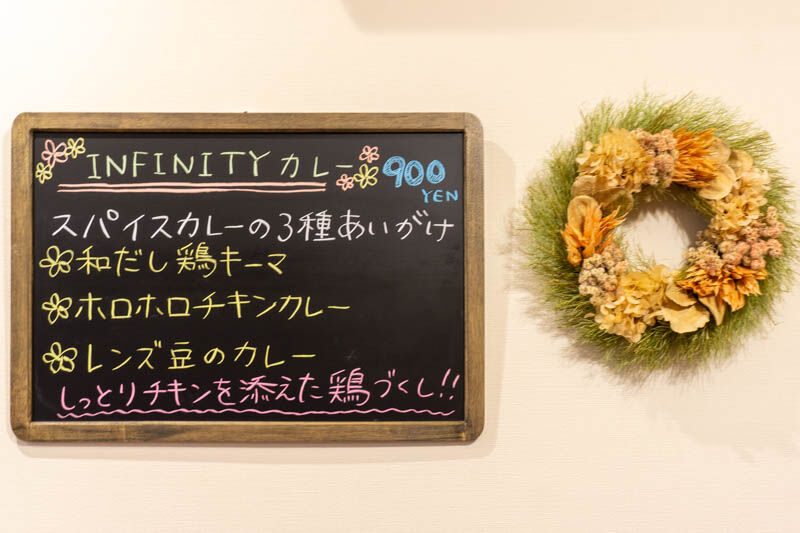 INFINITYカレー 900
YEN
スパイスカレーの3種あいがけ
和だし鶏キーマ
ホロホロチキンカレー
レンズ豆のカレー
しっとりチキンを添えた鶏づくし!!